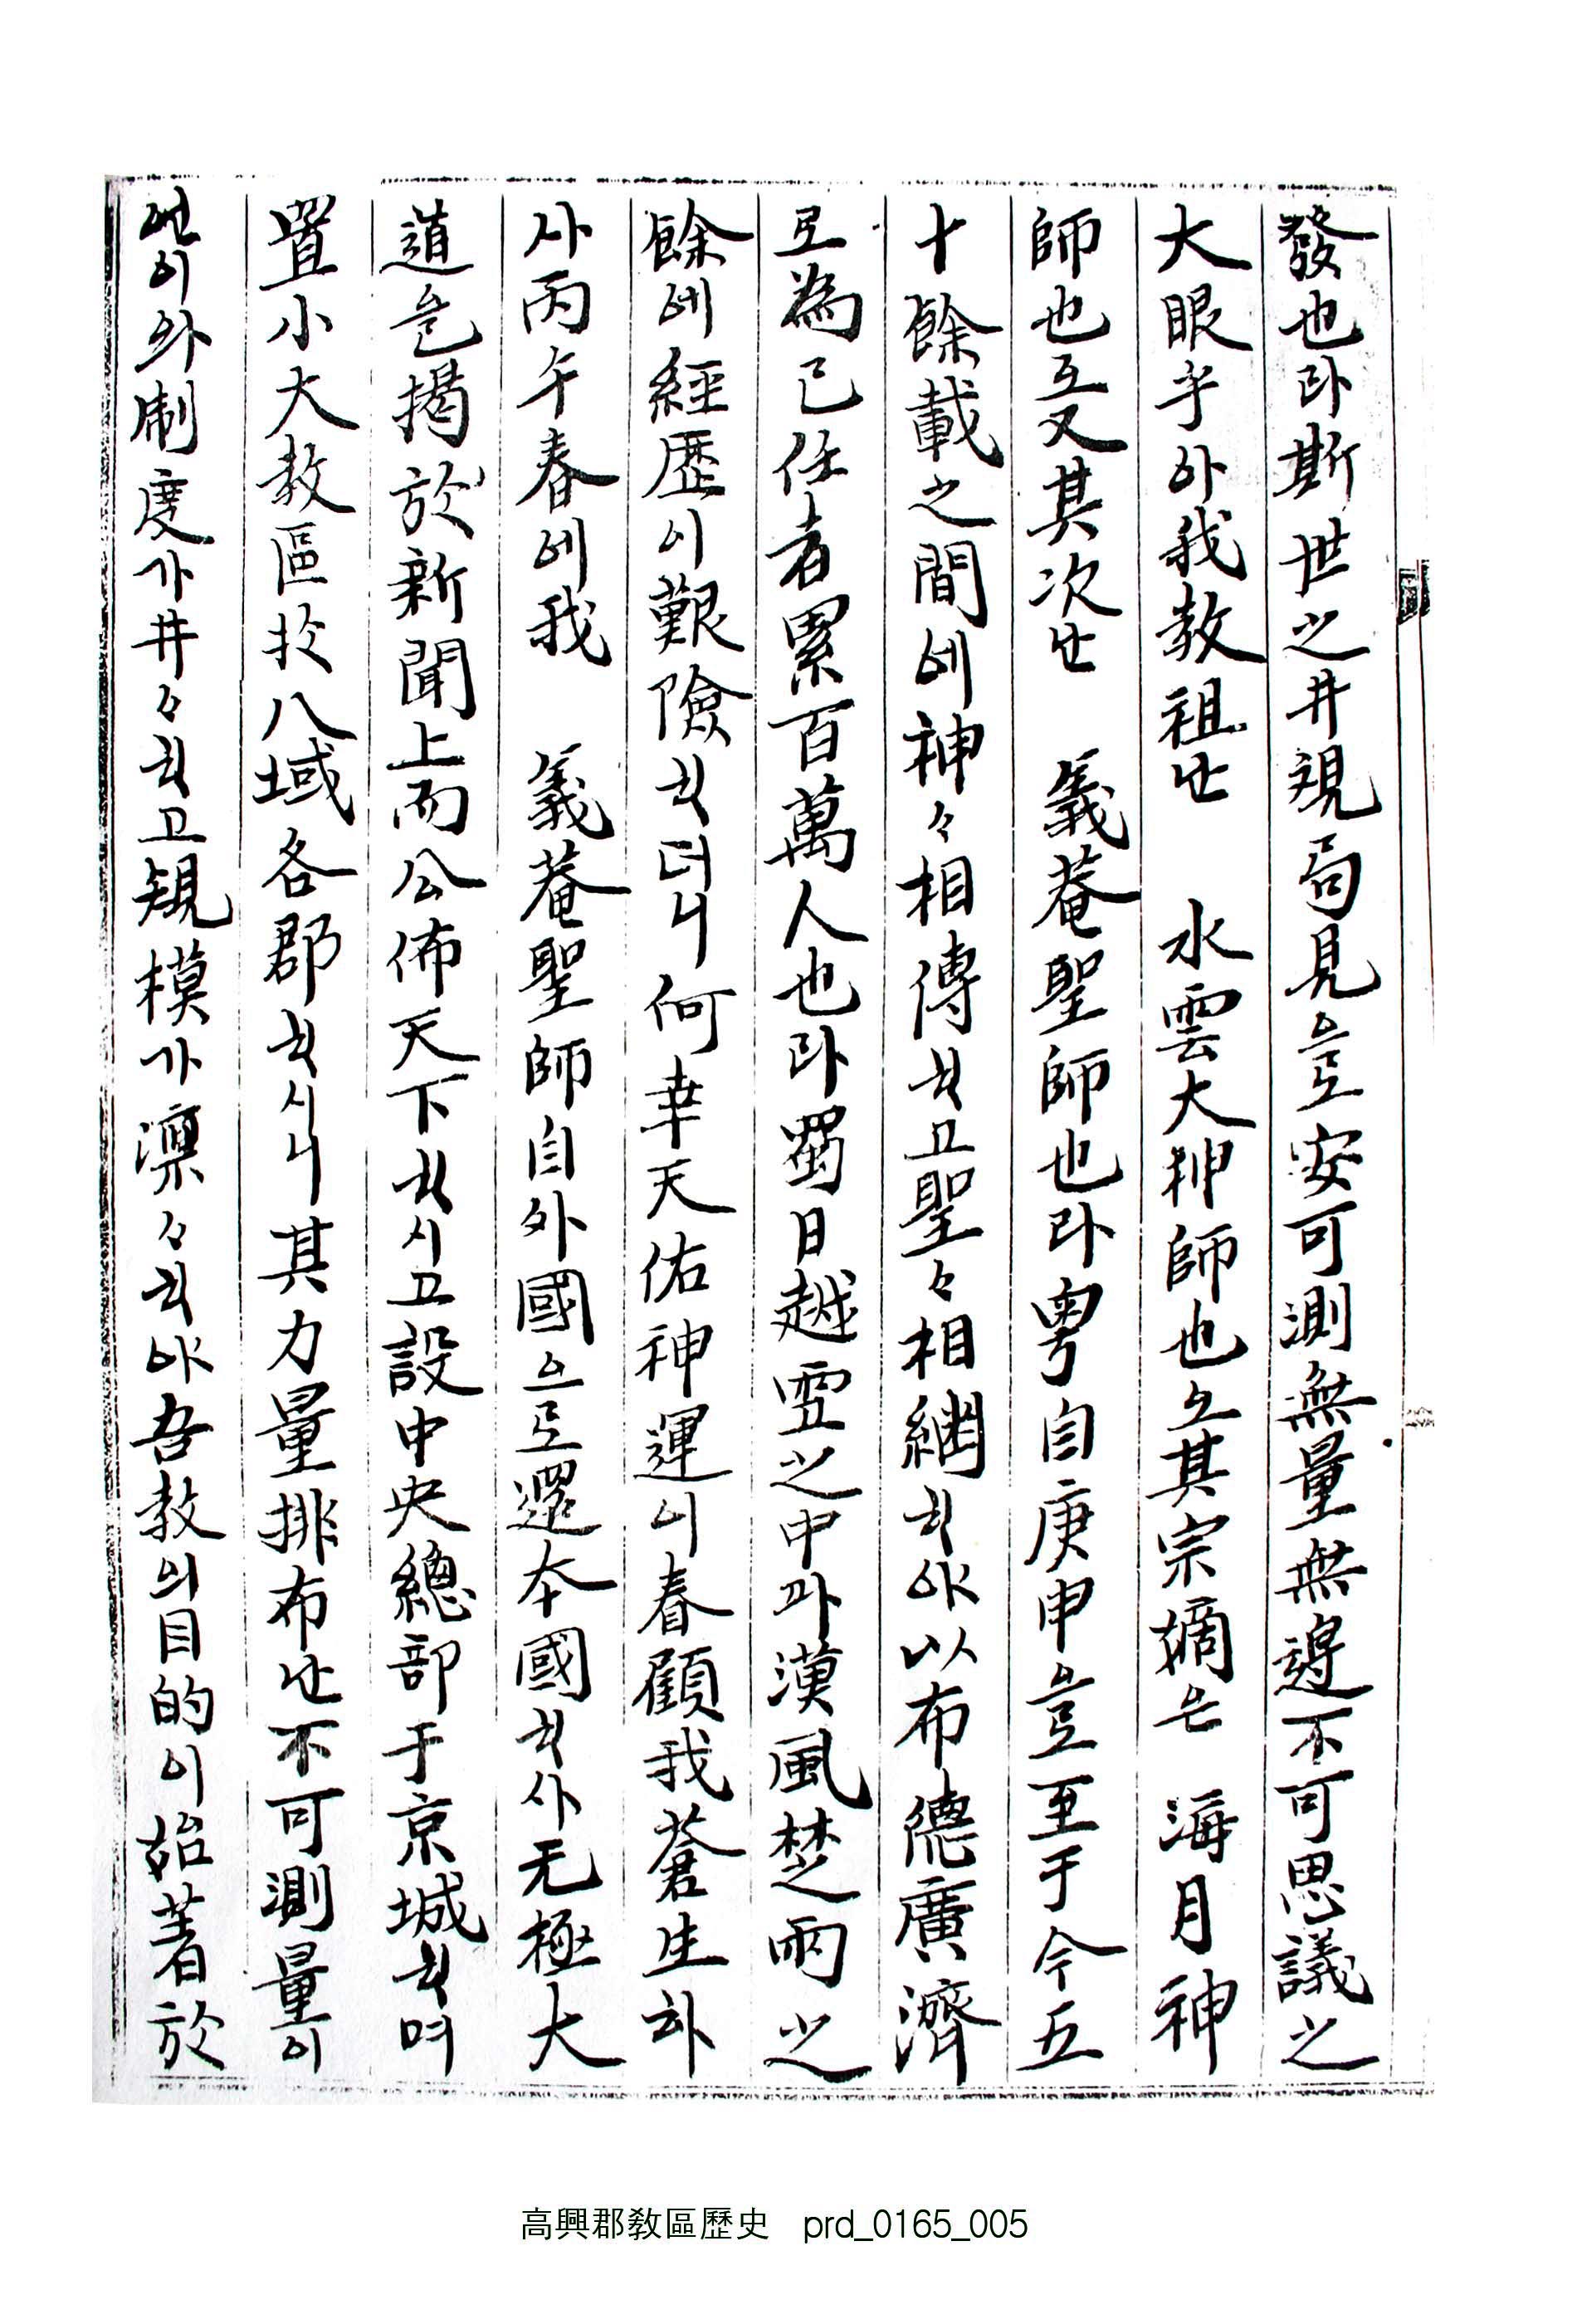 發也라斯世之井規局見으로安可測無量無邊不可思議之
大眼乎아我敎祖난 水雲大神師也오其宗嫡은 海月神
師也요又其次난 義菴聖師也라粤自庚申으로至于今五
十餘載之間에神々相傳하고聖々相繼하야以布德廣濟
로爲己任者累百萬人也라蜀日越雪之中과漢風楚雨之
餘에經歷이艱險하더니何幸天佑神運이春顧我蒼生하
사丙午春에我 義菴聖師自外國으로還本國하사无極大
道랄揭於新聞上而公佈天下하시고設中央總部于京城하며
置小大敎區於八域各郡하시니其力量排布난不可測量이
연이와制度가井々하고規模가凜々하야吾敎의目的이始著於
高興郡敎區歷史 prd_0165_005